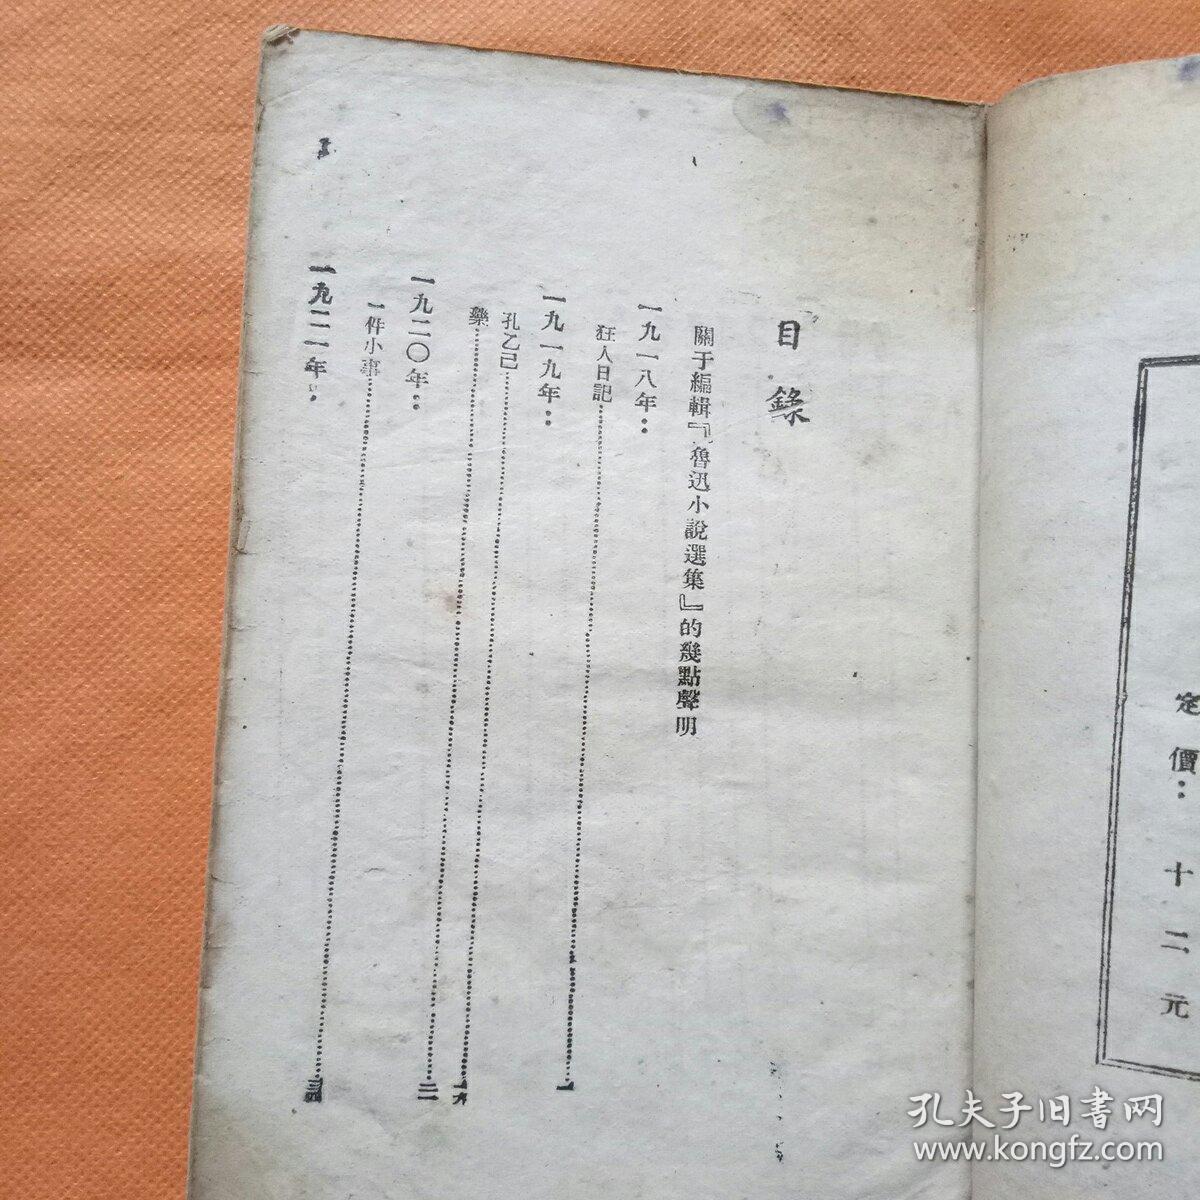 定價：十二元
目錄
關于編輯『魯迅小說選集』的幾點聲明
一九一八年：
狂人日記 一
一九一九年：
孔乙己 一六
藥 二二
一九二〇年：
一件小事 三四
一九二一年：
孔夫子旧书网
www.kongfz.com